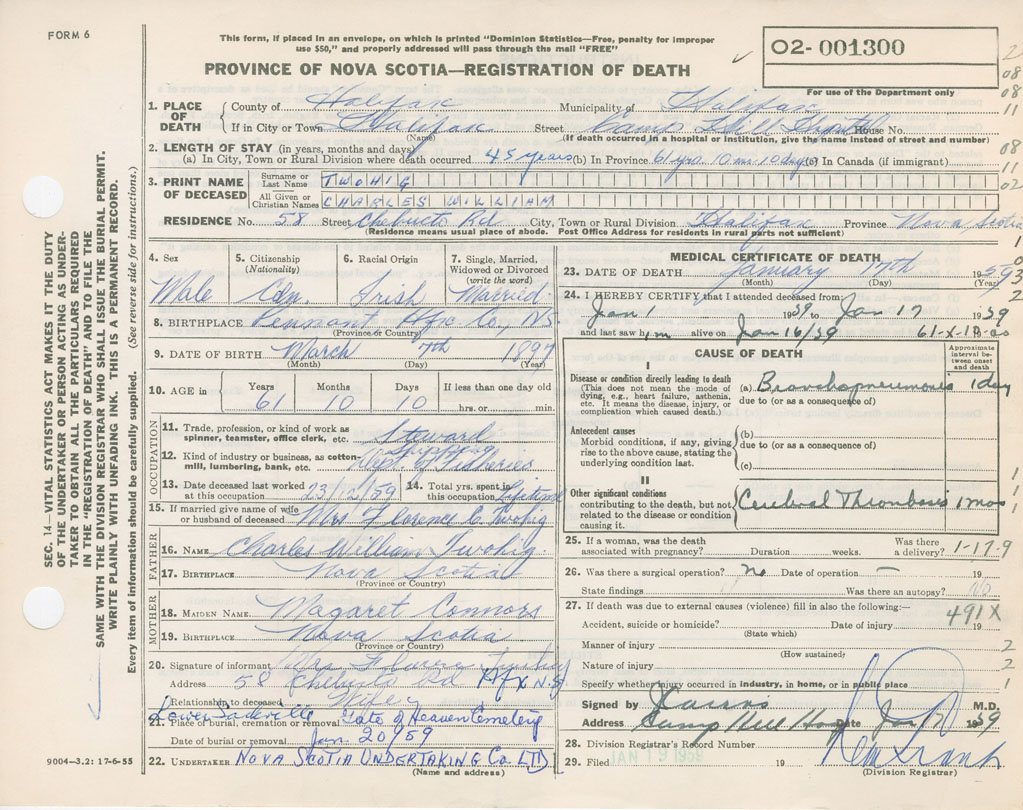 FORM 6
This form, if placed in an envelope, on which is printed "Dominion Statistics—Free, penalty for improper
use $50," and properly addressed will pass through the mail "FREE"
02-001300
For use of the Department only
PROVINCE OF NOVA SCOTIA—REGISTRATION OF DEATH
1. PLACE OF DEATH
County of Halifax Municipality of Halifax
If in City or Town Halifax Street Camp Hill Hospital House No.
(Name) (If death occurred in a hospital or institution, give the name instead of street and number)
2. LENGTH OF STAY (in years, months and days)
(a) In City, Town or Rural Division where death occurred 45 years (b) In Province 61 yrs. 10 mos. 10 days (c) In Canada (if immigrant)
3. PRINT NAME OF DECEASED
Surname or Last Name TWOHIG
All Given or Christian Names CHARLES WILLIAM
RESIDENCE No. 58 Street Chebucto Rd City, Town or Rural Division Halifax Province Nova Scotia
(Residence means usual place of abode. Post Office Address for residents in rural parts not sufficient)
4. Sex 5. Citizenship (Nationality) 6. Racial Origin 7. Single, Married, Widowed or Divorced (write the word)
Male Cdn. Irish Married
8. BIRTHPLACE Pennant Hfx Co., N.S.
(Province or Country)
9. DATE OF BIRTH March 7th 1897
(Month) (Day) (Year)
10. AGE in Years Months Days If less than one day old
61 10 10 hrs. or min.
OCCUPATION
11. Trade, profession, or kind of work as spinner, teamster, office clerk, etc. Steward
12. Kind of industry or business, as cotton-mill, lumbering, bank, etc. Shipping
Dept. of Fisheries
13. Date deceased last worked at this occupation 23/12/59 14. Total yrs. spent in this occupation Lifetime
15. If married give name of wife or husband of deceased Mrs Florence C. Twohig
FATHER
16. NAME Charles William Twohig
17. BIRTHPLACE Nova Scotia
(Province or Country)
MOTHER
18. MAIDEN NAME Magaret Connors
19. BIRTHPLACE Nova Scotia
(Province or Country)
20. Signature of informant Mrs Florence Twohig
Address 58 Chebucto Rd Hfx N.S.
Relationship to deceased Wife
Lower Sackville
21. Place of burial, cremation or removal Gate of Heaven Cemetery
Date of burial or removal Jan. 20/59
22. UNDERTAKER NOVA SCOTIA UNDERTAKING CO. LTD
(Name and address)
MEDICAL CERTIFICATE OF DEATH
23. DATE OF DEATH January 17th 1959
(Month) (Day) (Year)
24. I HEREBY CERTIFY that I attended deceased from:
Jan 1 1959 to Jan 17 1959
and last saw him alive on Jan 16/59 61-X-1B-
CAUSE OF DEATH
Approximate interval between onset and death
I
Disease or condition directly leading to death (a) Bronchopneumonia 1 day
(This does not mean the mode of dying, e.g., heart failure, asthenia, etc. It means the disease, injury, or complication which caused death.)
due to (or as a consequence of)
Antecedent causes (b)
Morbid conditions, if any, giving rise to the above cause, stating the underlying condition last.
due to (or as a consequence of)
(c)
II
Other significant conditions contributing to the death, but not related to the disease or condition causing it.
Cerebral Thrombosis 1 mos
25. If a woman, was the death associated with pregnancy? Duration weeks. Was there a delivery? 1-17-9
26. Was there a surgical operation? no Date of operation – 19
State findings Was there an autopsy? No
27. If death was due to external causes (violence) fill in also the following:— 491X
Accident, suicide or homicide? Date of injury 19
(State which)
Manner of injury
(How sustained)
Nature of injury
Specify whether injury occurred in industry, in home, or in public place
Signed by M.D.
Address Camp Hill Hosp Date Jan 17 1959
28. Division Registrar's Record Number
29. Filed JAN 19 1959 19
(Division Registrar)
SEC. 14—VITAL STATISTICS ACT MAKES IT THE DUTY
OF THE UNDERTAKER OR PERSON ACTING AS UNDER-
TAKER TO OBTAIN ALL THE PARTICULARS REQUIRED
IN THE "REGISTRATION OF DEATH" AND TO FILE THE
SAME WITH THE DIVISION REGISTRAR WHO SHALL ISSUE THE BURIAL PERMIT.
WRITE PLAINLY WITH UNFADING INK. THIS IS A PERMANENT RECORD.
Every item of information should be carefully supplied. (See reverse side for instructions.)
9004—3.2: 17-6-55
2
08
08
11
08
11
02
1
0
3
2
1
1
1
2
2
1